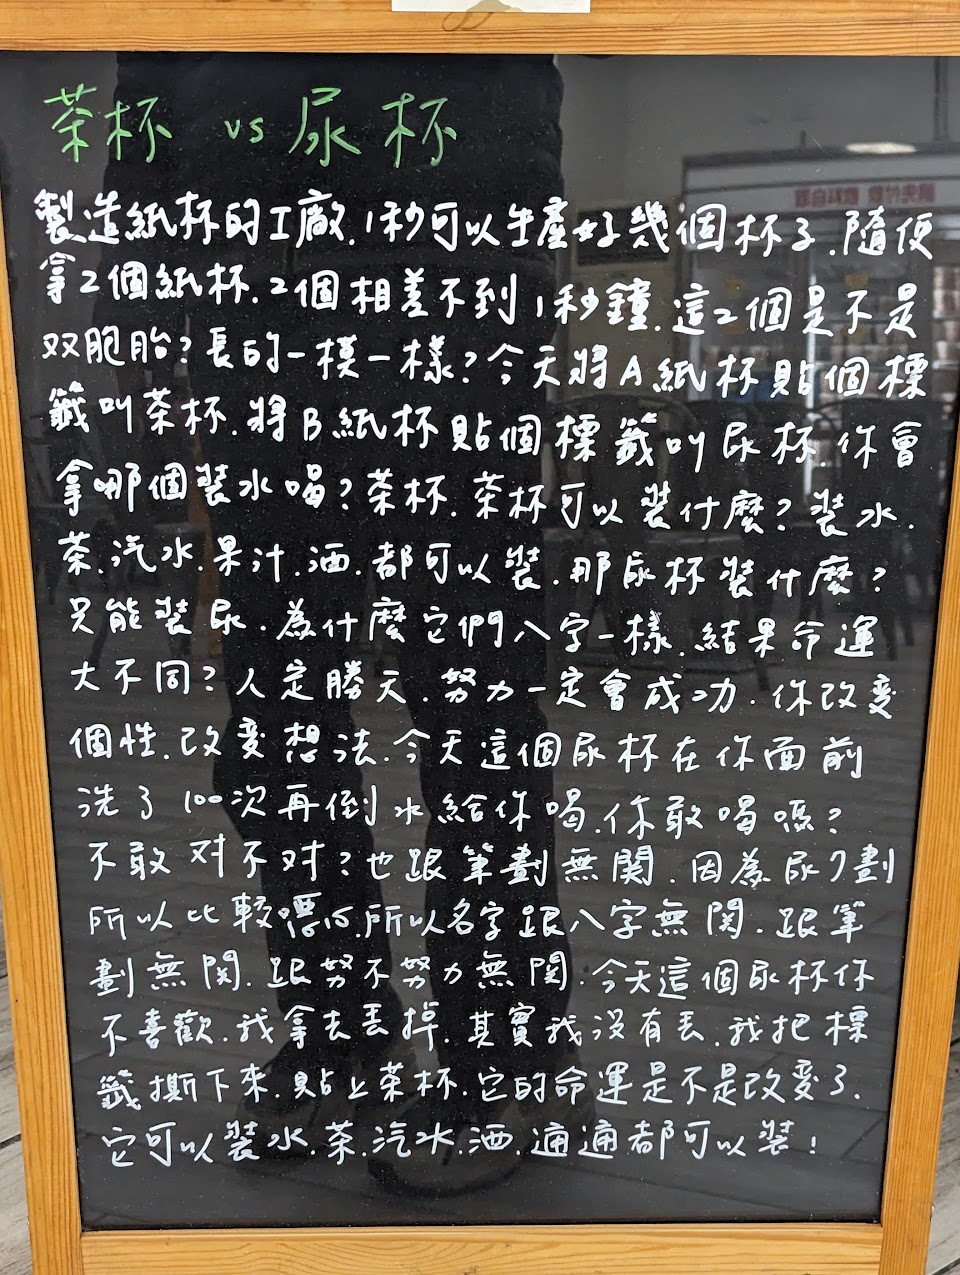 茶杯 vs 尿杯
製造紙杯的工廠.1秒可以生產好幾個杯子.隨便
拿2個紙杯.2個相差不到1秒鐘.這2個是不是
双胞胎?長的一模一樣?今天將A紙杯貼個標
籤叫茶杯.將B紙杯貼個標籤叫尿杯.你會
拿哪個裝水喝?茶杯.茶杯可以裝什麼?裝水.
茶.汽水.果汁.酒.都可以裝.那尿杯裝什麼?
只能裝尿.為什麼它們八字一樣.結果命運
大不同?人定勝天.努力一定會成功.你改变
個性.改变想法.今天這個尿杯在你面前
洗了100次再倒水給你喝.你敢喝嗎?
不敢对不对?也跟筆劃無関.因為尿7劃
所以比較噁心.所以名字跟八字無関.跟筆
劃無関.跟努不努力無関.今天這個尿杯你
不喜歡.我拿去丟掉.其實我沒有丟.我把標
籤撕下來.貼上茶杯.它的命運是不是改变了.
它可以裝水.茶.汽水.酒.通通都可以裝!
請先付款 飲料自取